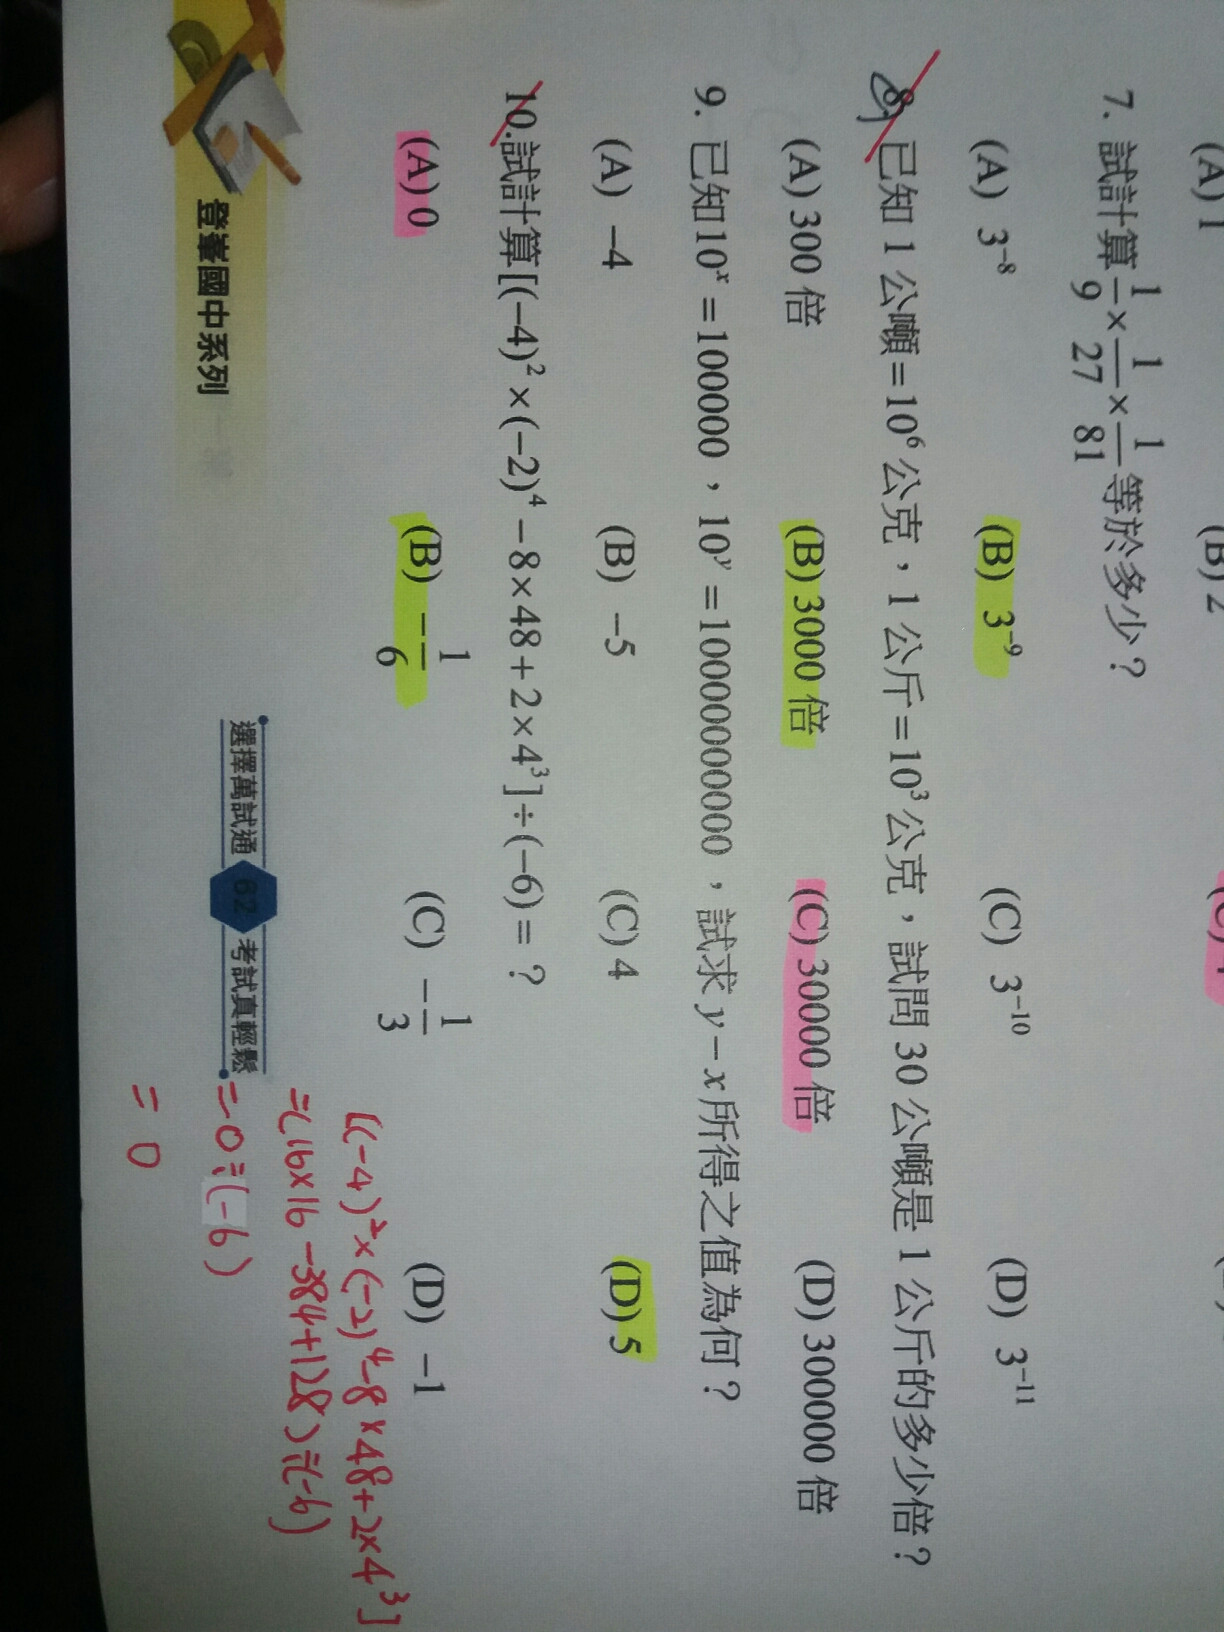 (A) 1
(B) 2
7. 試計算 1/9 × 1/27 × 1/81 等於多少？
(A) 3⁻⁸ (B) 3⁻⁹ (C) 3⁻¹⁰ (D) 3⁻¹¹
8. 已知 1 公噸＝10⁶ 公克，1 公斤＝10³ 公克，試問 30 公噸是 1 公斤的多少倍？
(A) 300 倍 (B) 3000 倍 (C) 30000 倍 (D) 300000 倍
9. 已知10ˣ＝100000，10ʸ＝10000000000，試求 y－x 所得之值為何？
(A) －4 (B) －5 (C) 4 (D) 5
10.試計算[(－4)²×(－2)⁴－8×48＋2×4³]÷(－6)＝？
(A) 0 (B) －1/6 (C) －1/3 (D) －1
[(-4)²×(-2)⁴-8×48+2×4³]
=(16×16-384+128)÷(-6)
=0÷(-6)
=0
登峯國中系列
選擇萬試通 62 考試真輕鬆